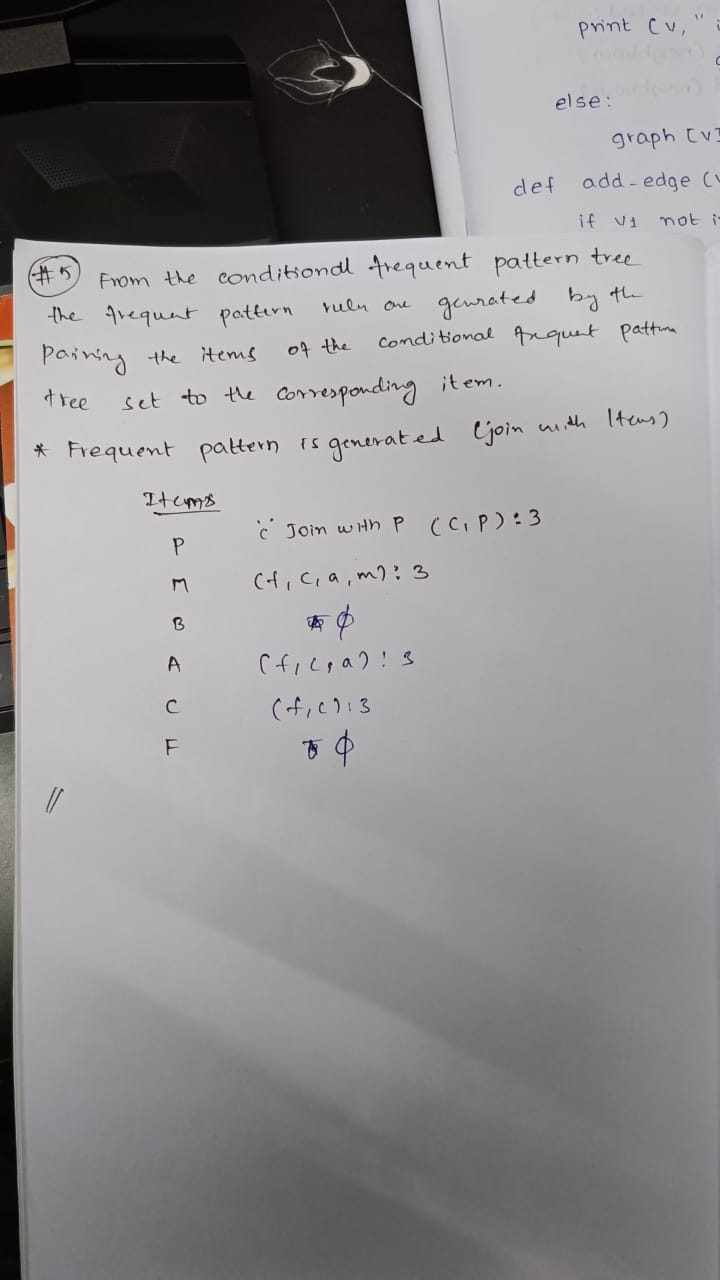 print (v, "
else:
graph [v]
def add-edge (v
if v1 not i
#5 From the conditiondl frequent pattern tree
the frequent pattern rules are genrated by the
Pairing the items of the conditional frequent pattern
tree set to the corresponding item.
* Frequent pattern is generated (join with Items)
Items
P 'c' Join with P (C, P) : 3
M (f, c, a, m) : 3
B ϕ
A (f, c, a) : 3
C (f, c) : 3
F ϕ
//